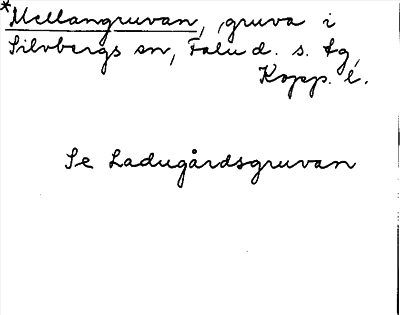 *Mellangruvan, gruva i
Silvbergs sn, Falu d. s. tg,
Kopp. l.
Se Ladugårdsgruvan